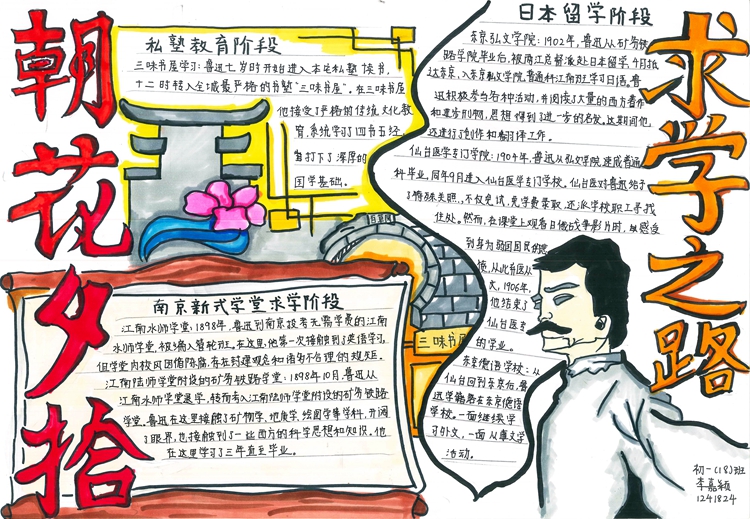 朝花夕拾
私塾教育阶段
三味书屋学习:鲁迅七岁时开始进入本宅私塾读书,
十二时转入全城最严格的书塾"三味书屋"。在三味书屋
他接受了严格的传统文化教
育,系统学习了四书五经,
自打下了深厚的
国学基础。
百草园
三味书屋
南京新式学堂求学阶段
江南水师学堂:1898年,鲁迅到南京投考无需学费的江南
水师学堂,被编入管轮班。在这里,他第一次接触到了英语学习,
但学堂内校风因循陈腐,存在封建观念和诸多不合理的规矩。
江南陆师学堂附设的矿务铁路学堂:1898年10月,鲁迅从
江南水师学堂退学,转而考入江南陆师学堂附设的矿务铁路
学堂。鲁迅在这里接触了矿物学、地质学、绘图学等学科,开阔
了眼界,也接触到了一些西方的科学思想和知识。他
在这里学习了三年直至毕业。
日本留学阶段
东京弘文学院:1902年,鲁迅从矿务铁
路学院毕业后,被两江总督派赴日本留学,4月抵
达东京,入东京弘文学院普通科江南班学习日语。鲁
迅积极参与各种活动,并阅读了大量的西方著作
和进步刊物,思想得到了进一步的启发。这期间他
还进行了创作和翻译工作。
仙台医学专门学院:1904年,鲁迅从弘文学院速成普通
科毕业,同年9月进入仙台医学专门学校。仙台医对鲁迅给予
了特殊关照,不仅免试、免学费录取,还派学校职工寻找
住处。然而,在课堂上观看日俄战争影片时,他感受
到身为弱国国民的愤
愤,从此弃医从
文,1906年,
他结束了
仙台医专
的学业。
东京德语学校:从
仙台回到东京后,鲁
迅学籍落在东京德语
学校。一面继续学
习外文,一面从事文学
活动。
求学之路
初一(18)班
李嘉颖
1241824